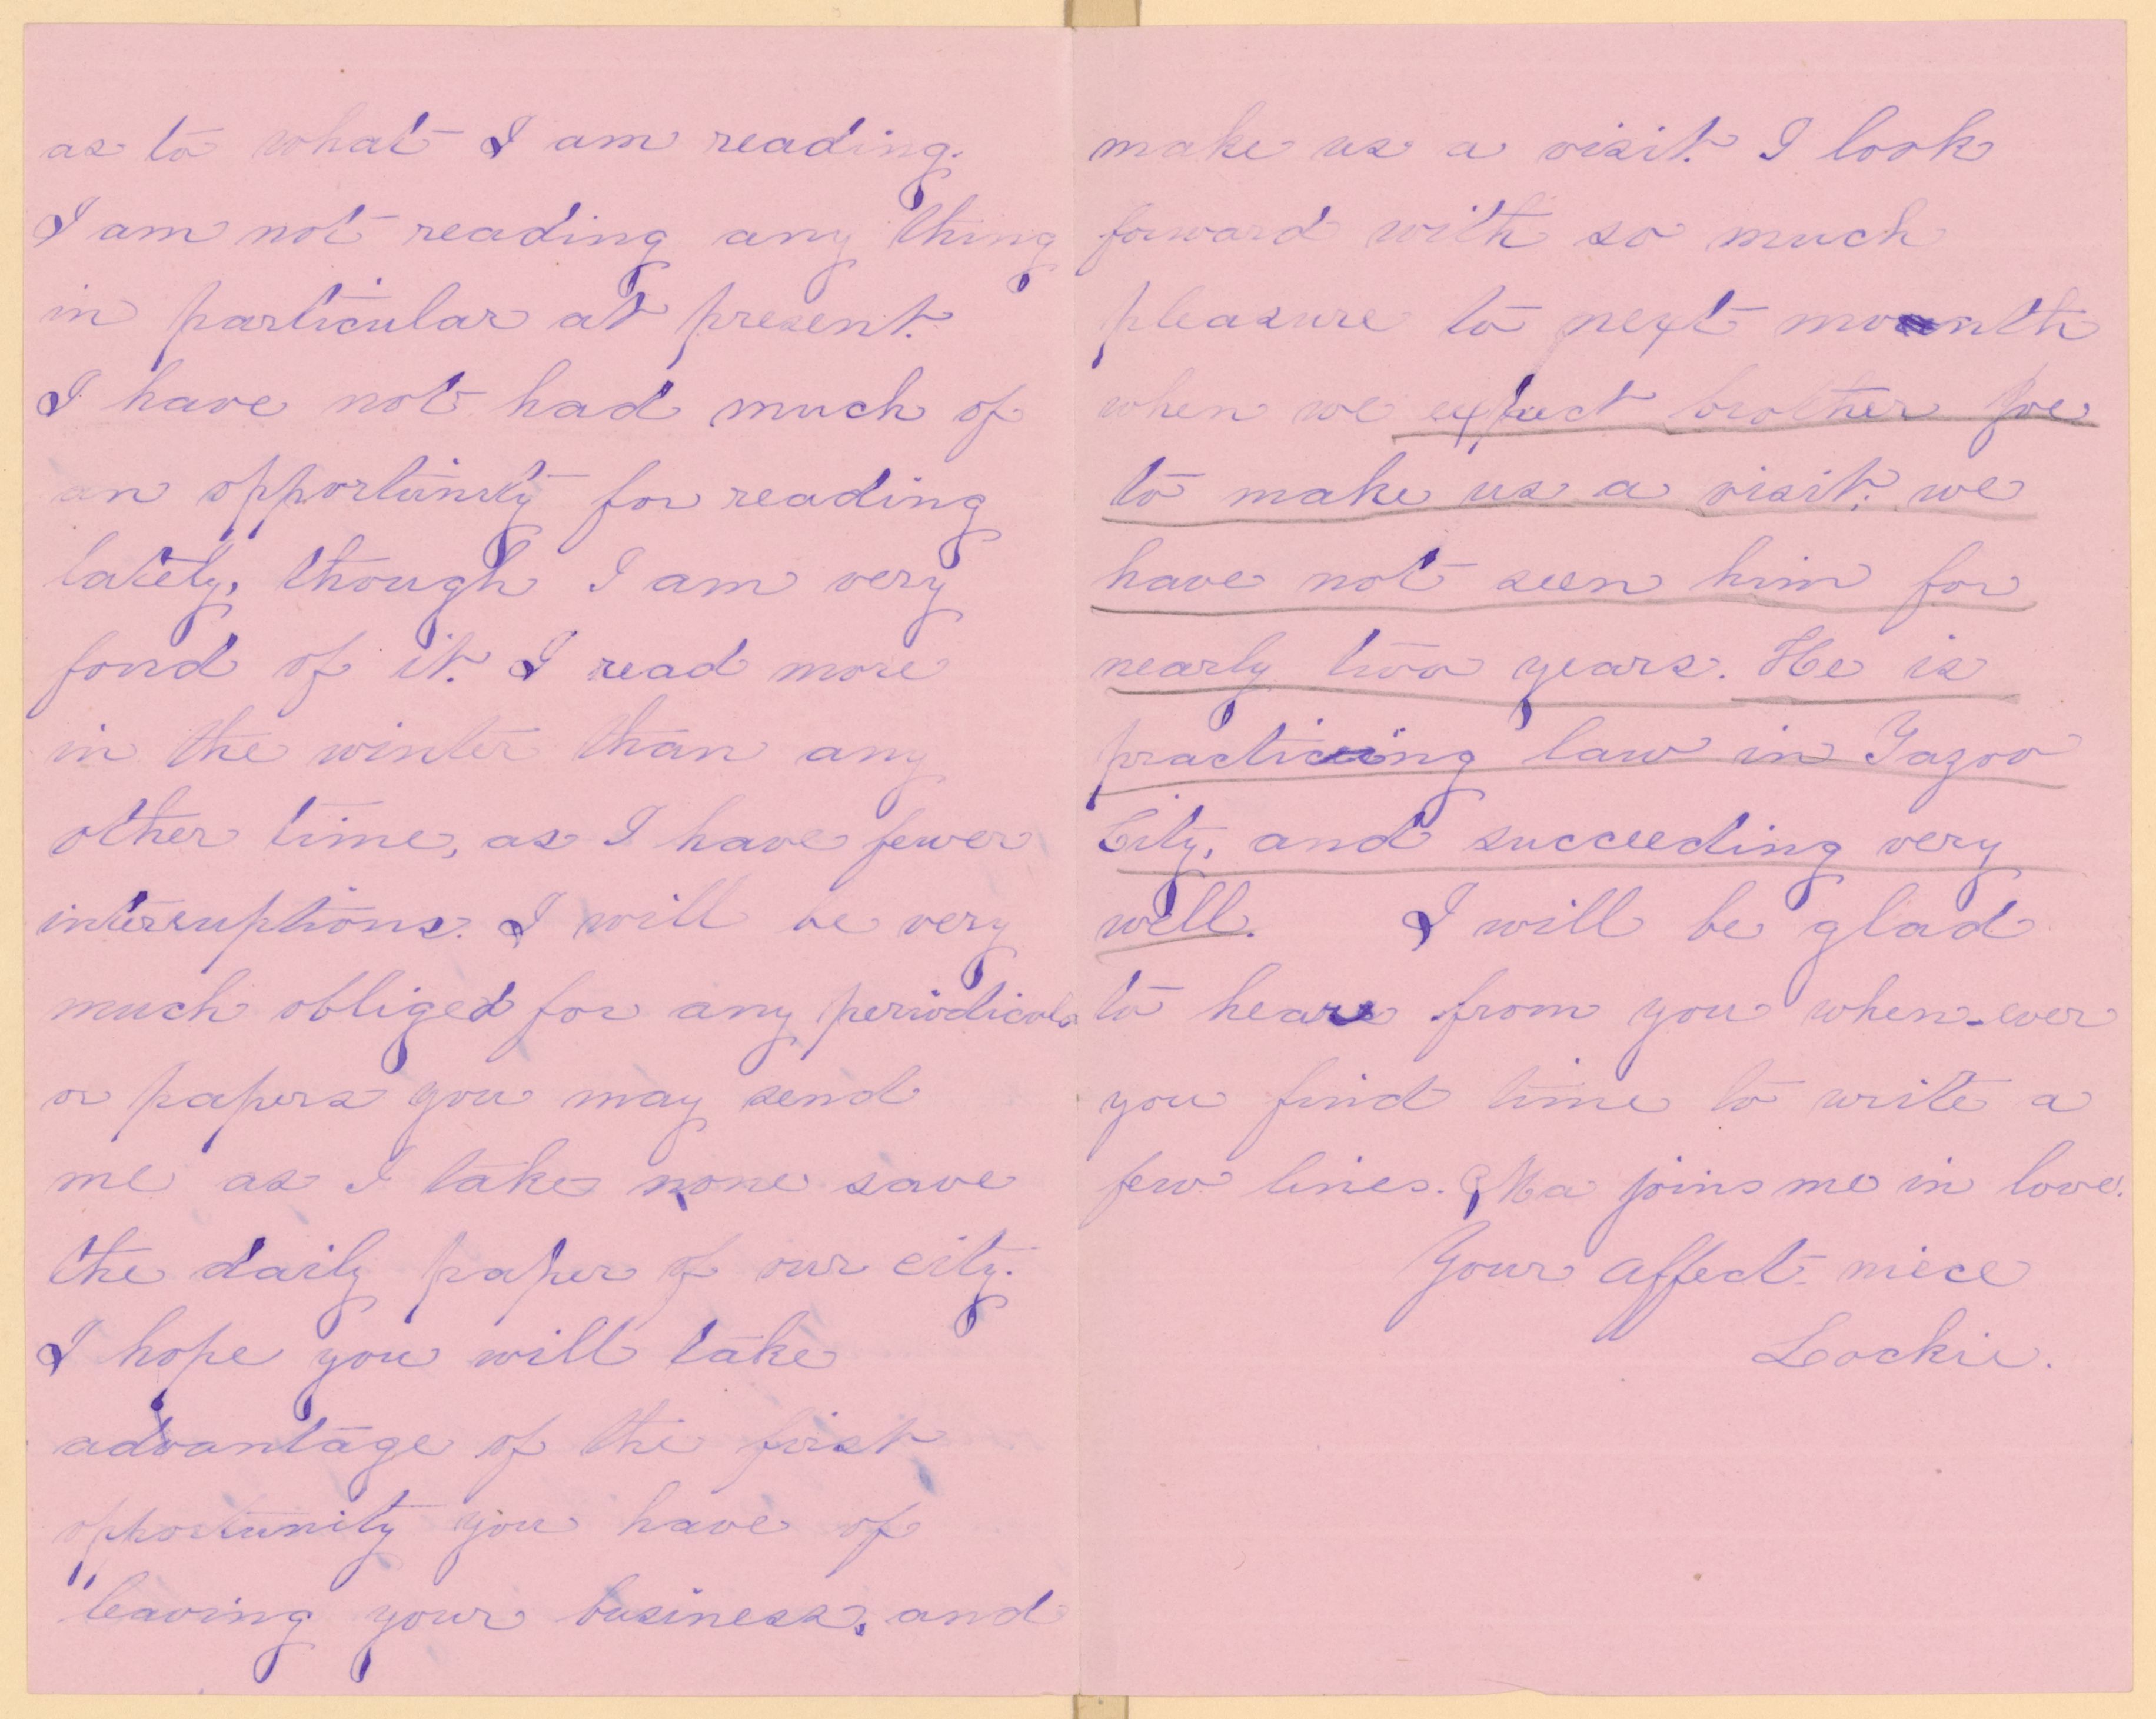 as to what I am reading.
I am not reading any thing
in particular at present.
I have not had much of
an opportunity for reading
lately, though I am very
fond of it. I read more
in the winter than any
other time, as I have fewer
interruptions. I will be very
much obliged for any periodicals
or papers you may send
me as I take none save
the daily paper of our city.
I hope you will take
advantage of the first
opportunity you have of
"leaving your business, and
make us a visit. I look
forward with so much
pleasure to next month
when we expect brother Joe
to make us a visit. we
have not seen him for
nearly two years. He is
practicing law in Yazoo
City, and succeeding very
well. I will be glad
to hear from you when-ever
you find time to write a
few lines. Ma joins me in love.
Your affect. niece
Lockie.